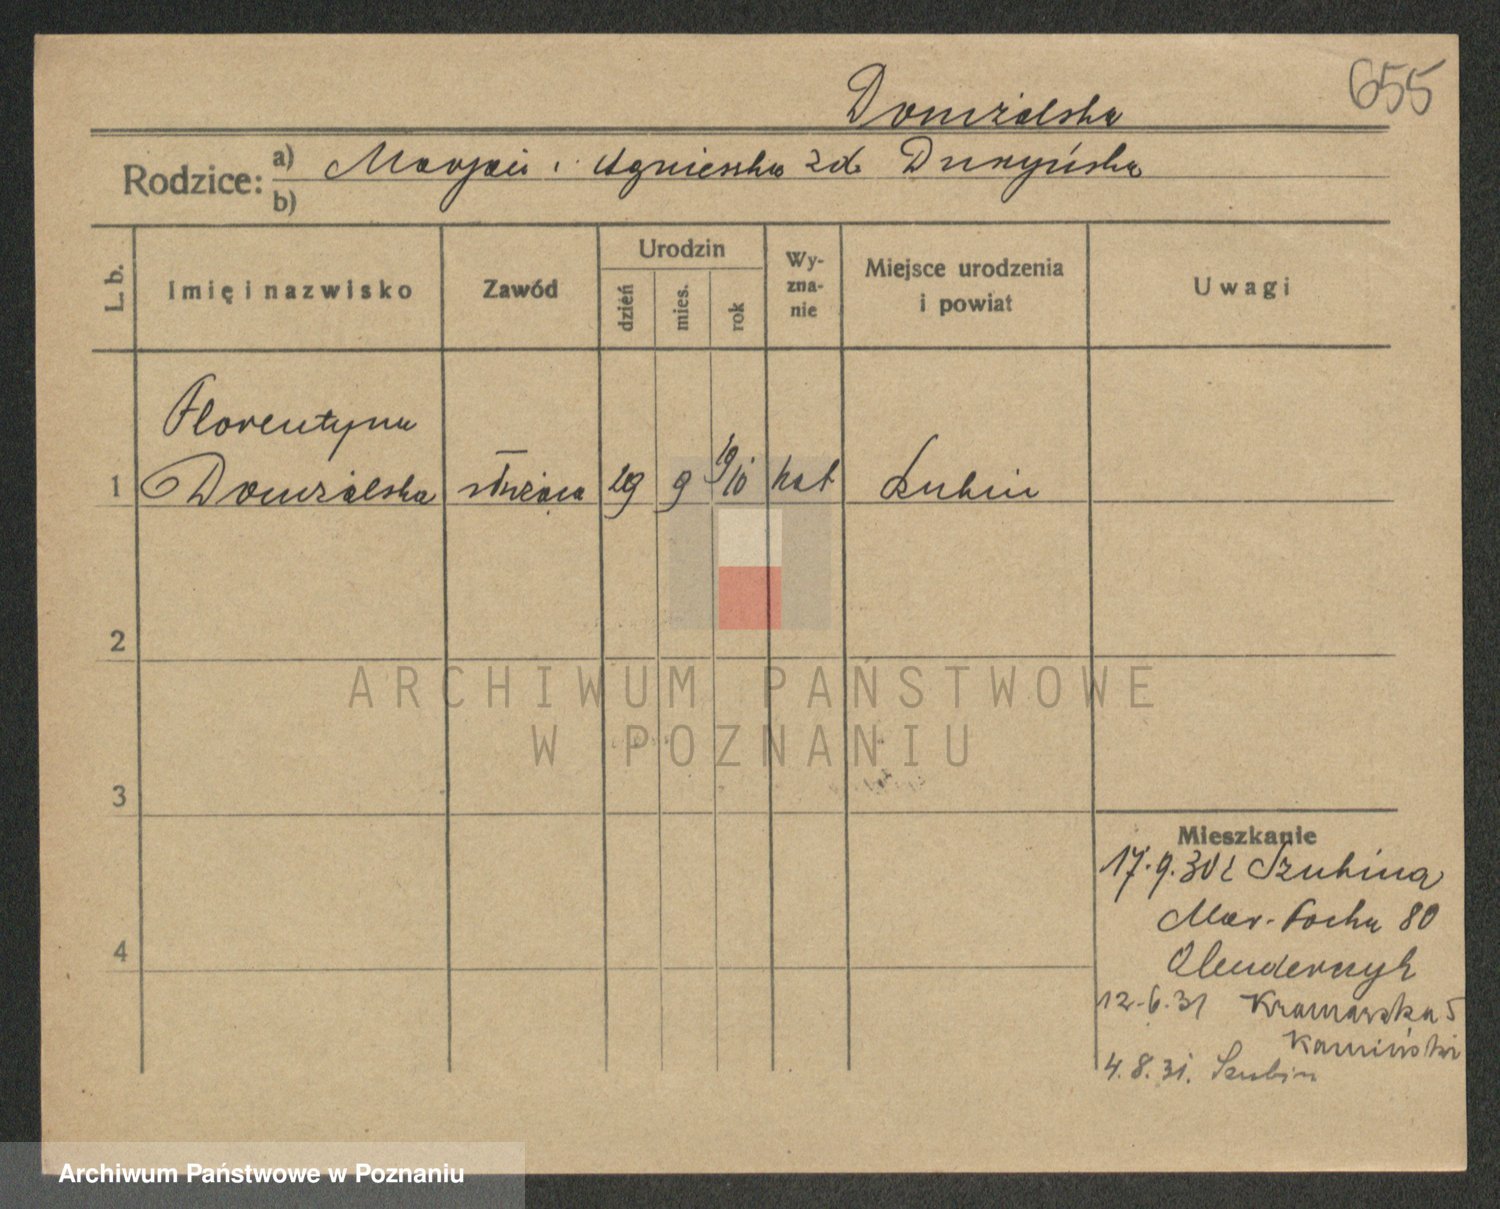 655
Domżalska
Rodzice: a) Marjan i Agnieszka zd.
b)
L. b.
Imię i nazwisko
Zawód
Urodzin
dzień
mies.
rok
Wy-
zna-
nie
Miejsce urodzenia
i powiat
Uwagi
Florentyna
1 Domżalska służąca 29 9 1910 kat
2
3
4
Mieszkanie
17.9.30 z Szubina
Mar. Focha 80
Olenderczyk
12.6.31 Kramarska 5
Kamiński
4.8.31. Szubin
ARCHIWUM PAŃSTWOWE
W POZNANIU
Archiwum Państwowe w Poznaniu